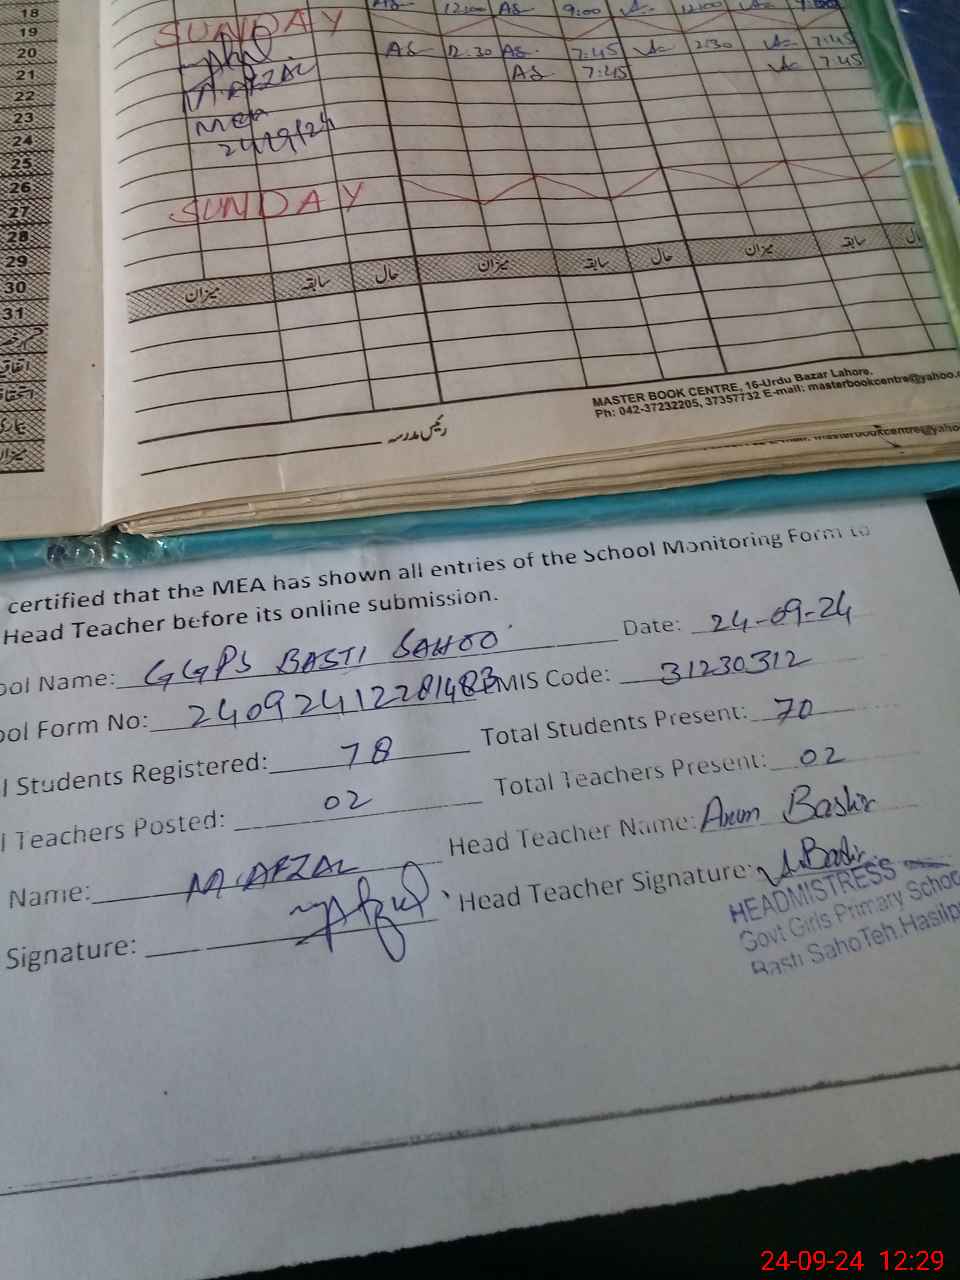 18 AS 12:00 AS 9:00 12:00 9:00
19 SUNDAY
20 AS 12:30 AS 7:45 2:30 7:45
21 M.AFZAL AS 7:45 7:45
22
23 MEA
24 24/9/24
25
26
27 SUNDAY
28
29
30 میزان سابقہ حال میزان سابقہ حال میزان سابقہ حال
31
میزان
MASTER BOOK CENTRE, 16-Urdu Bazar Lahore.
Ph: 042-37232205, 37357732 E-mail: masterbookcentre@yahoo.
رئیس مدرسہ
certified that the MEA has shown all entries of the School Monitoring Form to
Head Teacher before its online submission.
ool Name: GGPS BASTI SAHOO Date: 24-09-24
ool Form No: 24092412281483 EMIS Code: 31230312
l Students Registered: 78 Total Students Present: 70
l Teachers Posted: 02 Total Teachers Present: 02
Name: M.AFZAL Head Teacher Name: Bashir
Signature: Head Teacher Signature: Bashir
HEADMISTRESS
Govt Girls Primary Schoo
Basti Saho Teh. Hasilp
24-09-24 12:29